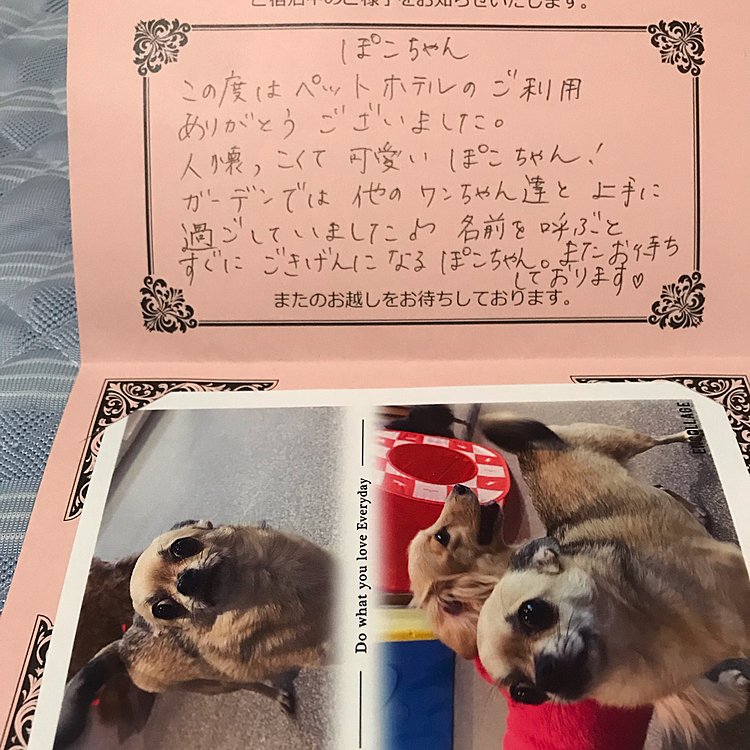 ご宿泊中のご様子をお知らせいたします。
ぽこちゃん
この度はペットホテルのご利用
ありがとうございました。
人懐っこくて可愛いぽこちゃん!
ガーデンでは他のワンちゃん達と上手に
過ごしていました♪ 名前を呼ぶと
すぐにごきげんになるぽこちゃん。またお待ち
しております♡
またのお越しをお待ちしております。
Do what you love Everyday